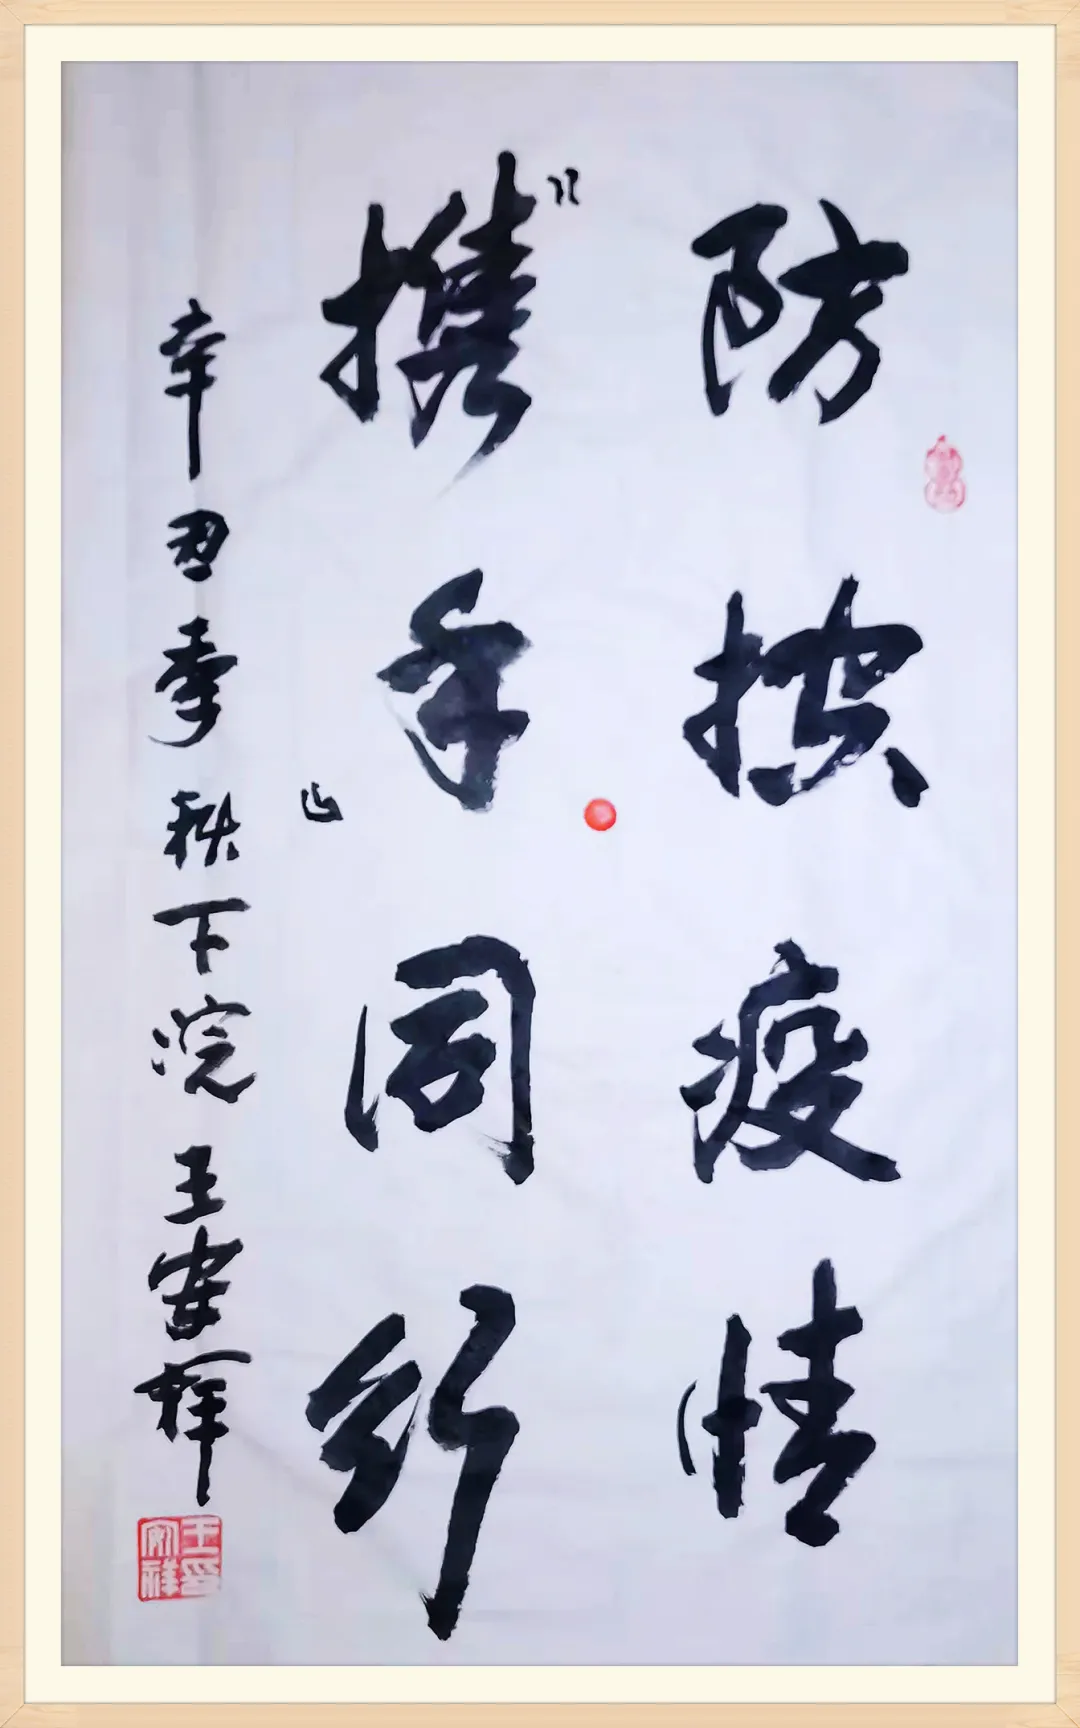 防控疫情
携手同行
辛丑季秋下浣王安祥
王印
安祥